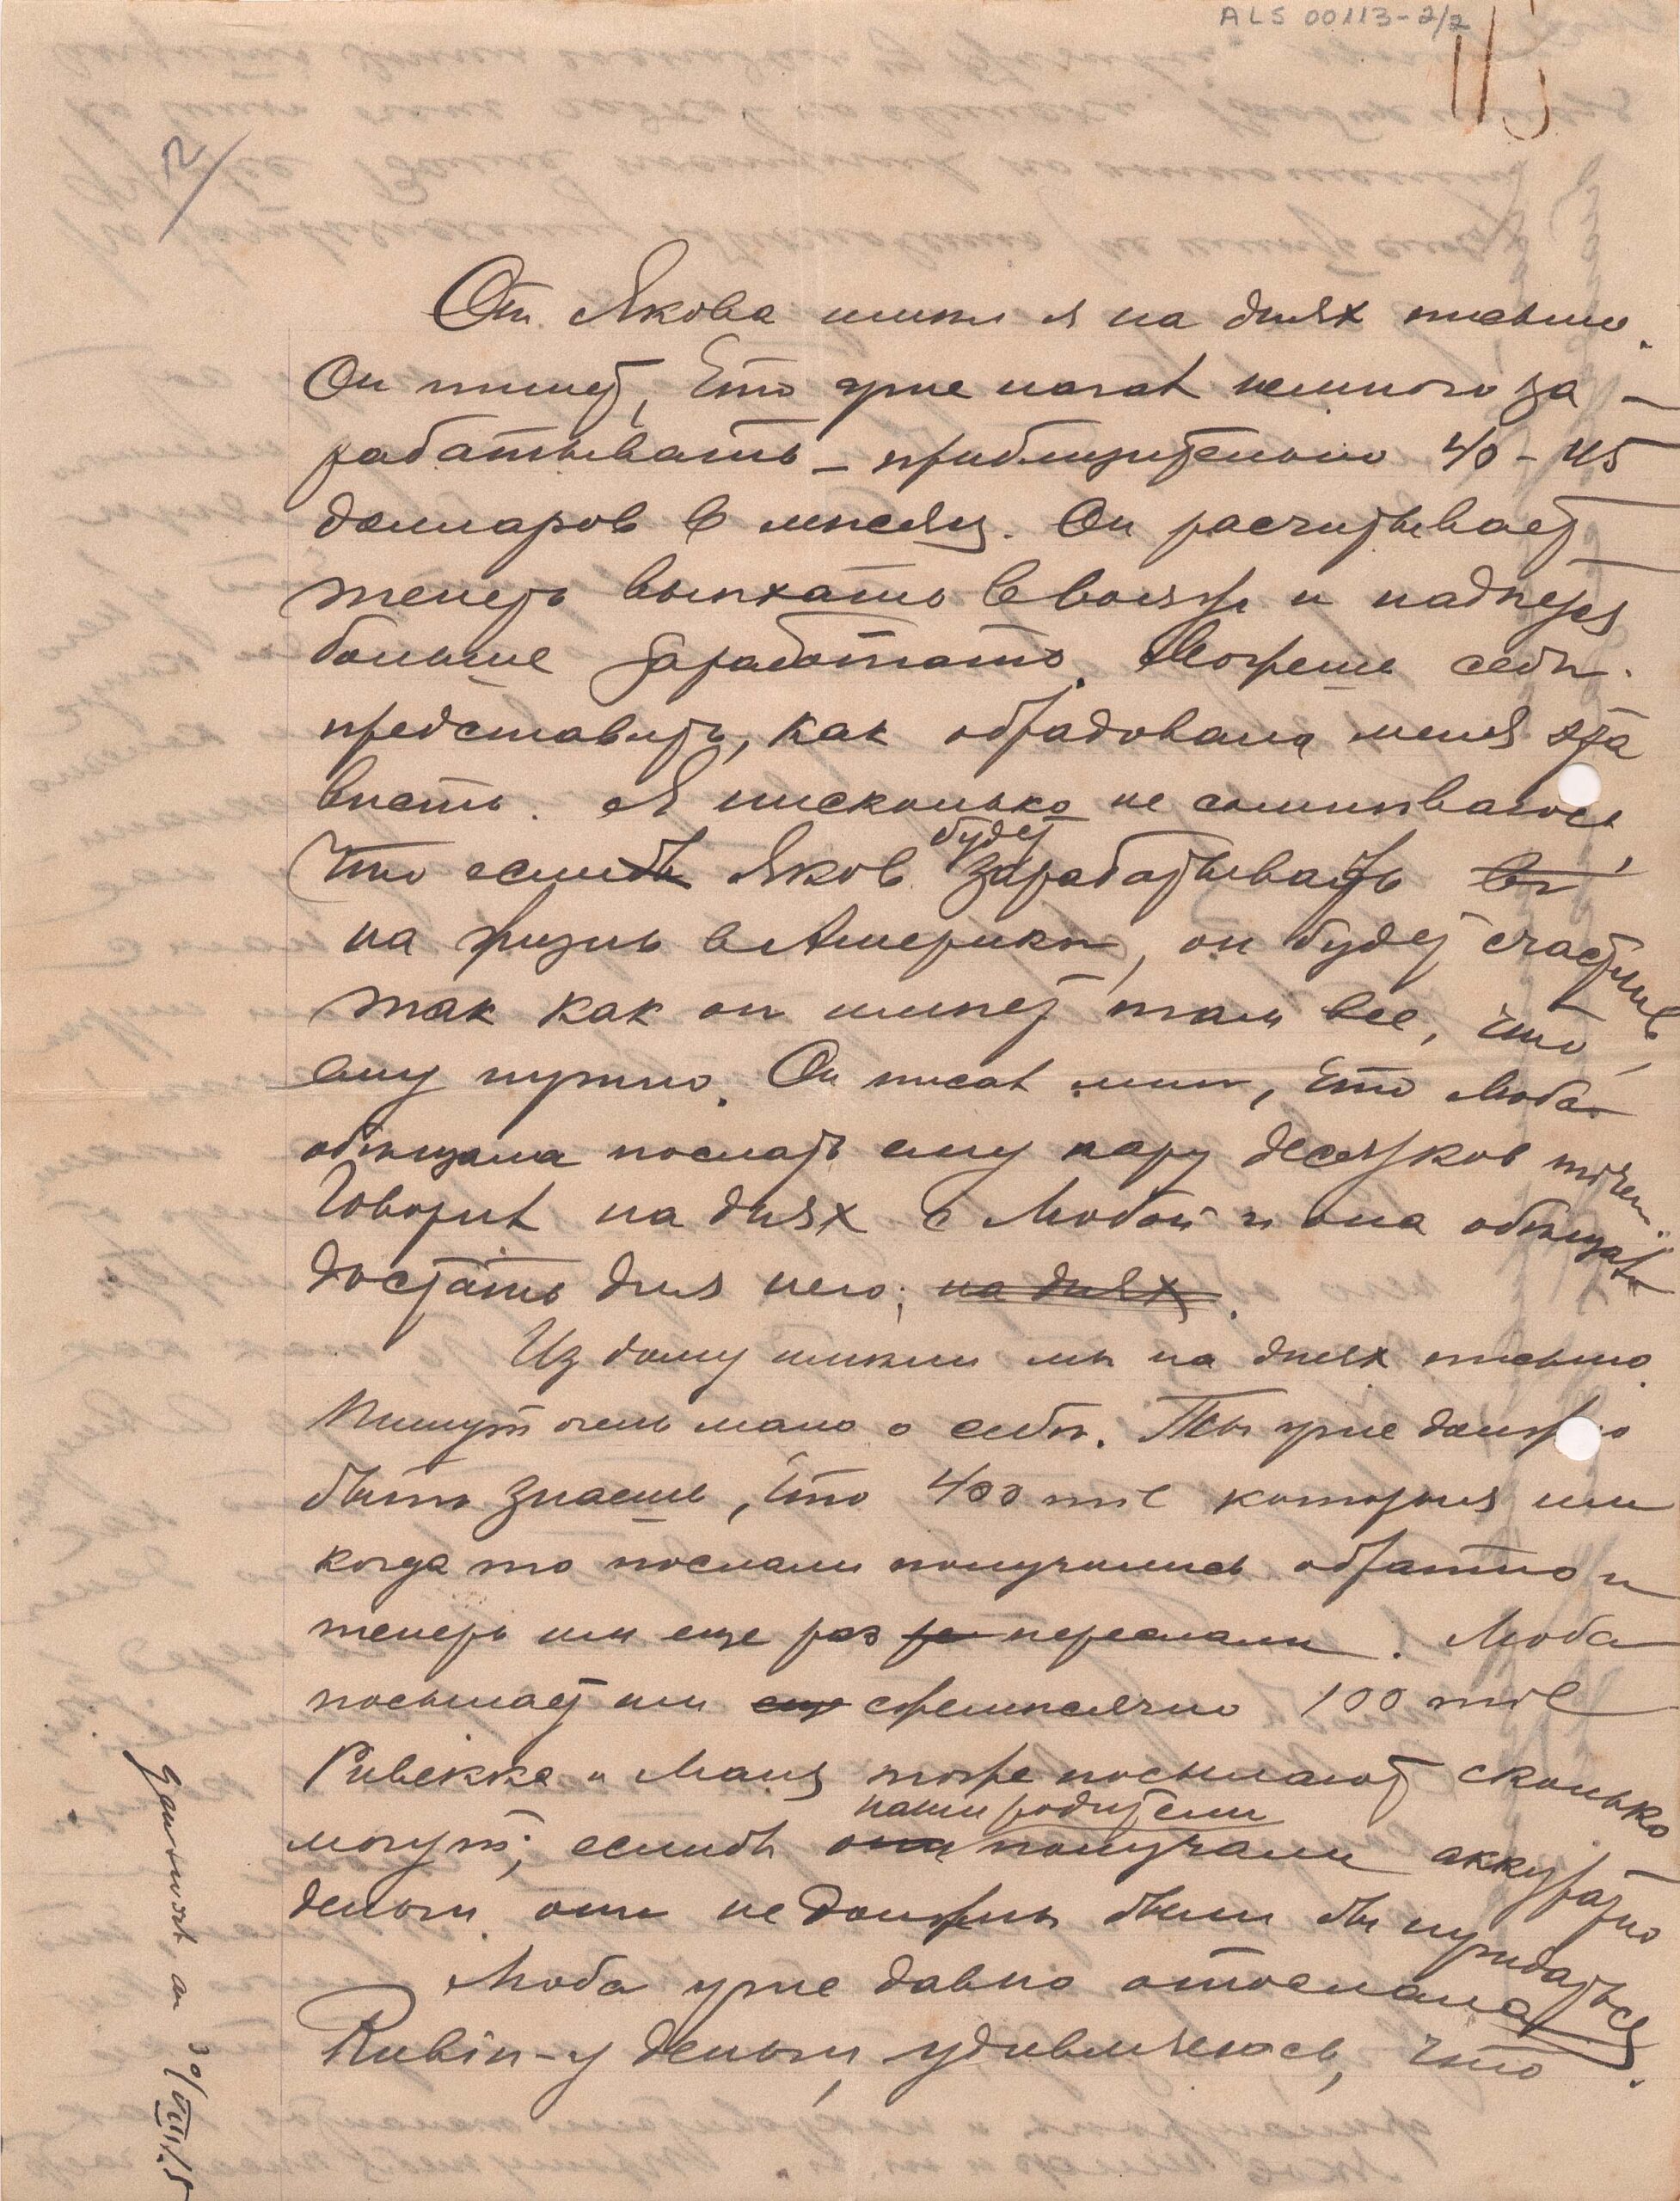 ALS 00113-2/2
113
2/
От Якова имел я на днях письмо.
Он пишет, что уже начал немного за-
рабатывать – приблизительно 40-45
долларов в месяц. Он расчитывает
теперь выѣхать в вояж и надѣется
больше заработать. Можешь себѣ
представить, как обрадовала меня эта
вѣсть. Я нисколько не сомнѣваюсь,
что еслибъ Яков будет зарабатывать
на жизнь в Америкѣ, он будет счастлив,
так как он имѣет там все, что
ему нужно. Он писал мнѣ, что Люба
обѣщала послать ему пару десятков
Говорил на днях с Любой и она обѣщала
достать для него; на днях.
Из дому имѣли мы на днях письмо.
Пишут очень мало о себѣ. Ты уже должно
быть знаешь, что 400 mil которыя им
когда то послали получились обратно и
теперь им еще раз переслали. Люба
посылает им еще ежемѣсячно 100 mil
Ривекка и Маня тоже посылают сколько
могут; еслибъ они наши родители получали аккуратно
деньги они не должны были бы нуждаться.
Люба уже давно отослала
Rubin-у деньги, удивляюсь, что
Geantwort an 30/VIII.15